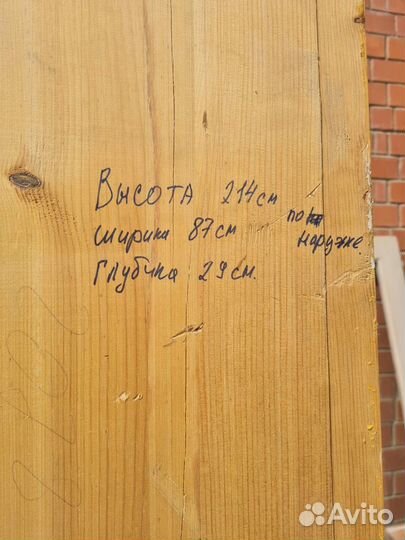 Высота 214см
ширина 87см по наруже
Глубина 29см.
Avito